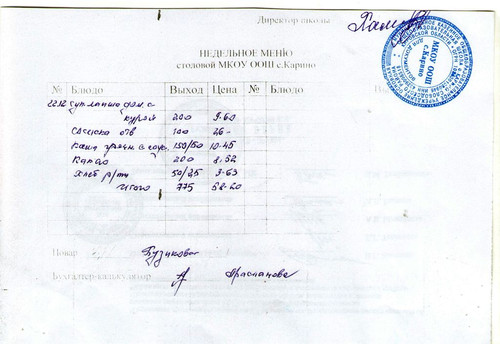 Директор школы
НЕДЕЛЬНОЕ МЕНЮ
столовой МКОУ ООШ с.Карино
№ Блюдо Выход Цена № Блюдо
суп лапша дом. с
курой 200 9-60
Сосиска отв 100 26-
Каша гречн. с соус. 150/50 10-45
Какао 200 8,52
Хлеб р/пш 50/25 3-63
Итого 775 58-20
Повар Бузикова
Бухгалтер-калькулятор
МКОУ ООШ
с.Карино